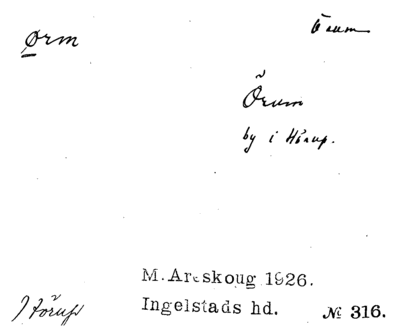 Ørm
Örum
Õrum
by i Hörup.
M. Areskoug 1926.
Hörups
Ingelstads hd.
№ 316.